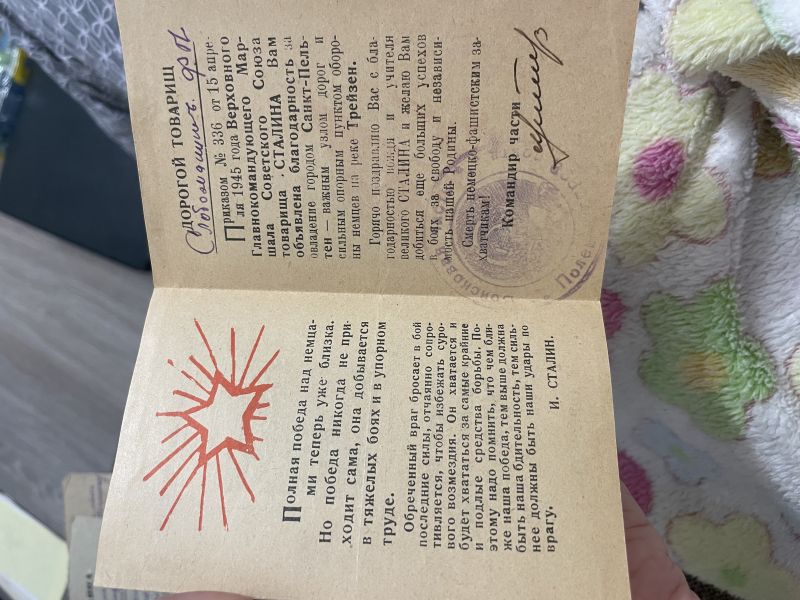 Полная победа над немца-
ми теперь уже близка.
Но победа никогда не при-
ходит сама, она добывается
в тяжелых боях и в упорном
труде.
Обреченный враг бросает в бой
последние силы, отчаянно сопро-
тивляется, чтобы избежать суро-
вого возмездия. Он хватается и
будет хвататься за самые крайние
и подлые средства борьбы. По-
этому надо помнить, что чем бли-
же наша победа, тем выше должна
быть наша бдительность, тем силь-
нее должны быть наши удары по
врагу.
И. СТАЛИН.
ДОРОГОЙ ТОВАРИЩ
Приказом № 336 от 15 апре-
ля 1945 года Верховного
Главнокомандующего Мар-
шала Советского Союза
товарища СТАЛИНА Вам
объявлена благодарность за
овладение городом Санкт-Пель-
тен — важным узлом дорог и
сильным опорным пунктом оборо-
ны немцев на реке Трейзен.
Горячо поздравляю Вас с бла-
годарностью вождя и учителя
великого СТАЛИНА и желаю Вам
добиться еще больших успехов
в боях за свободу и независи-
мость нашей Родины.
Смерть немецко-фашистским за-
хватчикам!
Командир части